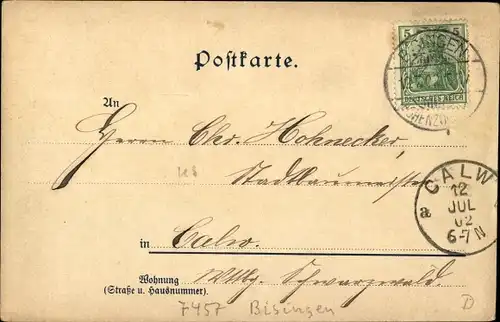 5 5
BISINGEN
DEUTSCHES REICH
Postkarte.
An
Herrn Chr. Hohnecker,
Stadtbaumeister
CALW
12
JUL
02
6-7 N
a
in Calw.
Wohnung Württbg. Schwarzwald.
(Straße u. Hausnummer).
7457 Bisingen
D